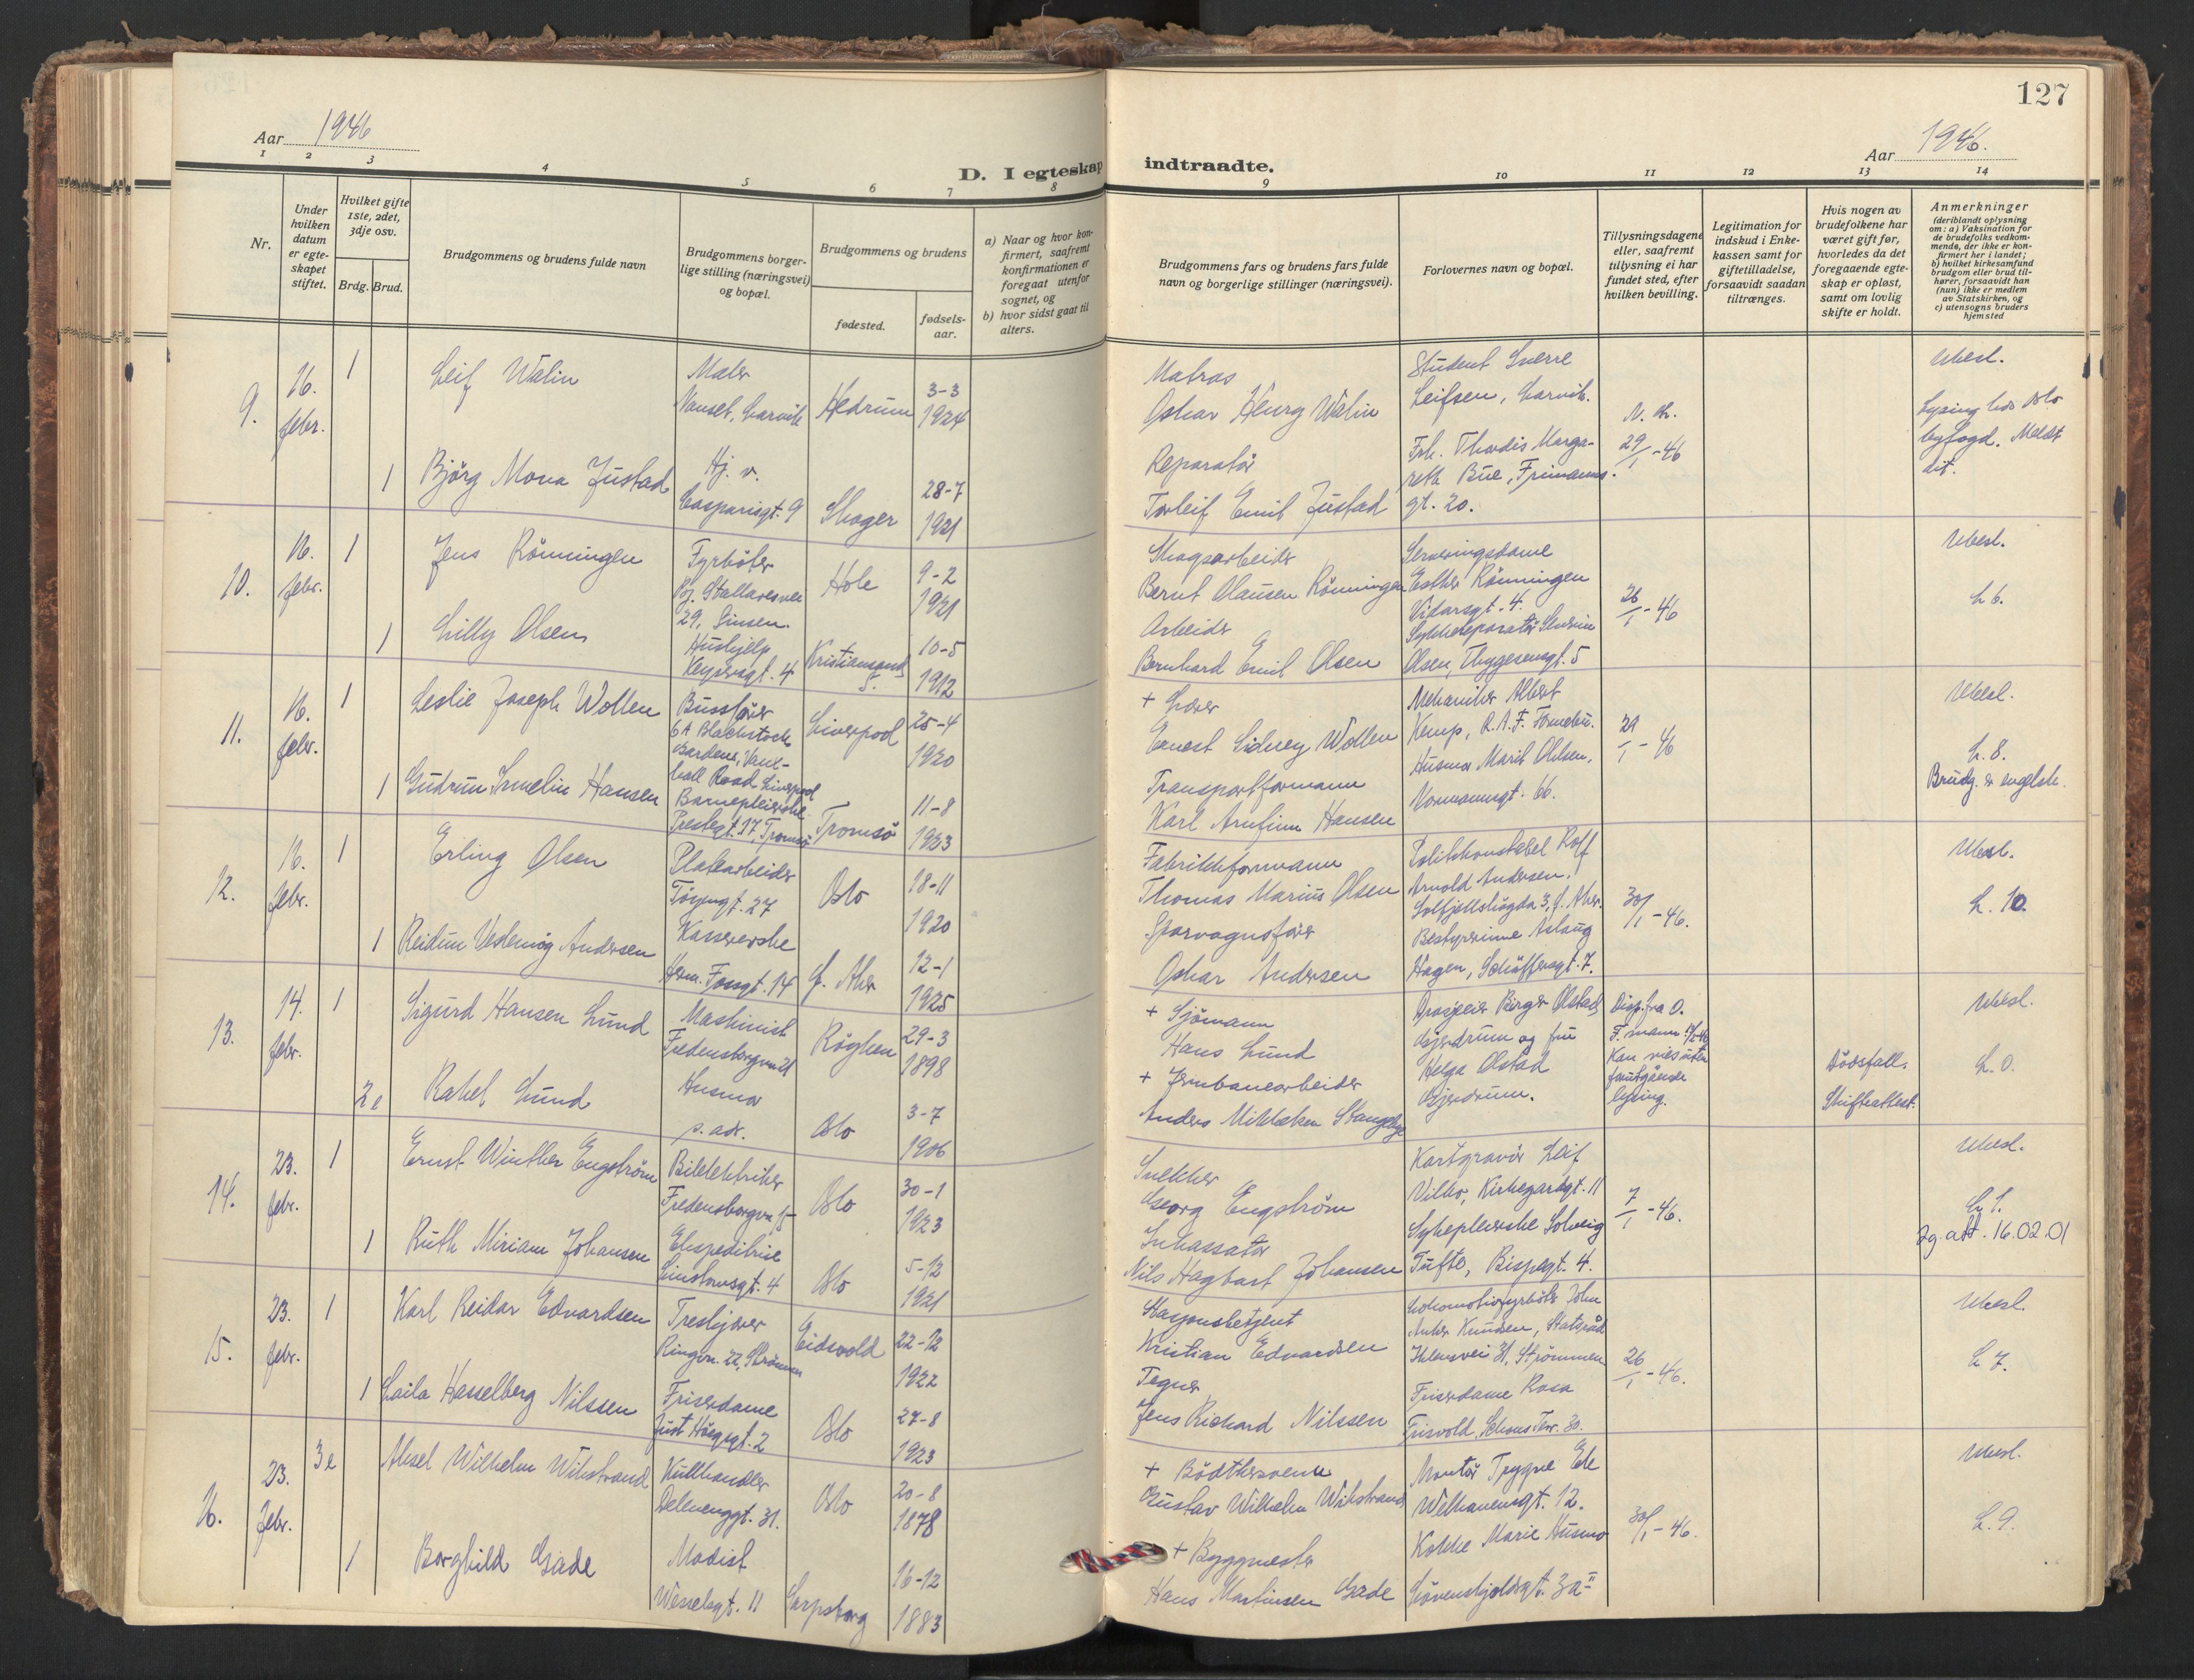 127
Aar 1946
Aar 1946.
D. I egteskap indtraadte.
1 2 3 4 5 6 7 8 9 10 11 12 13 14
Nr.
Under hvilken datum er egteskapet stiftet.
Hvilket gifte 1ste, 2det, 3dje osv.
Brdg. Brud.
Brudgommens og brudens fulde navn
Brudgommens borgerlige stilling (næringsvei) og bopæl.
Brudgommens og brudens
fødested.
fødselsaar.
a) Naar og hvor konfirmert, saafremt konfirmationen er foregaat utenfor sognet, og
b) hvor sidst gaat til alters.
Brudgommens fars og brudens fars fulde navn og borgerlige stillinger (næringsvei).
Forlovernes navn og bopæl.
Tillysningsdagene eller, saafremt tillysning ei har fundet sted, efter hvilken bevilling.
Legitimation for indskud i Enkekassen samt for giftetilladelse, forsaavidt saadan tiltrænges.
Hvis nogen av brudefolkene har været gift før, hvorledes da det foregaaende egteskap er opløst, samt om lovlig skifte er holdt.
Anmerkninger
(deriblandt oplysning om: a) Vaksination for de brudefolks vedkommende, der ikke er konfirmert her i landet; b) hvilket kirkesamfund brudgom eller brud tilhører, forsaavidt han (hun) ikke er medlem av Statskirken, og c) utensogns bruders hjemsted
9.
16. febr.
1
Leif Walin
Maler
Nanset, Larvik
Hedrum
3-3 1924
Matros
Oskar Henry Walin
Student Sverre
Leifsen, Larvik.
29/1-46
Ubesl.
Lysing hos Oslo
byfogd. Meldt
dit.
1
Björg Mona Justad
Hj. v.
Casparisgt. 9
Skoger
28-7 1921
Reparatör
Torleif Emil Justad
Frk. Thordis Marga-
reth Bue, Frimanns-
gt. 20.
10.
16. febr.
1
Jens Rönningen
Fyrböter
Bj. Stallaresvei
29, Sinsen.
Hole
9-2 1921
Skogsarbeider
Bernt Clausen Rönningen
Serveringsdame
Esther Rönningen
Vidarsgt. 4.
26/1-46
Ubesl.
L 6.
1
Lilly Olsen
Hushjelp
Keysersgt. 4
Kristiansand S.
10-5 1912
Arbeider
Bernhard Emil Olsen
Olsen, Thygesensgt. 5
11.
16. febr.
1
Leslie Joseph Wollen
Bussförer
6A Blackstock
Gardens, Vaux-
hall Road Liverpool
Liverpool
25-4 1920
Ernest Sidney Wollen
Mekaniker Albert
Kemp, R.A.F. Fornebu.
29/1-46
Ubesl.
L. 8.
Brudg. er engelsk.
1
Gudrun Irmelin Hansen
Barnepleierske
Prestegt. 17, Tromsö
Tromsö
11-8 1923
Transportformann
Karl Arnfinn Hansen
Husmor Marit Ohlsen,
Normannsgt. 66.
12.
16. febr.
1
Erling Olsen
Platearbeider
Töyengt. 27
Oslo
18-11 1920
Fabrikkformann
Thomas Marius Olsen
Politikonstabel Rolf
Arnold Andersen,
30/1-46.
Ubesl.
L. 10.
1
Reidun Veslemöy Andersen
Kassererske
Herm. Fossgt. 14
Ö. Aker
12-1 1925
Sporvognsförer
Oskar Andersen
Bestyrerinne Aslaug
Hagen, Schäffersgt. 7.
13.
14. febr.
1
Sigurd Hansen Lund
Maskinist
Fredensborgvn 21
Röyken
29-3 1898
+ Sjömann
Hans Lund
Drosjeeier Birger Olstad,
Gjerdrum og fru
Helga Olstad
Gjerdrum.
Disp. fra O.
Kan vies uten
forutgående
lysing.
Dödsfall.
Skifteattest.
Ubesl.
L. 0.
2e
Rakel Lund
Husmor
s. adr.
Oslo
3-7 1906
+ Jernbanearbeider
14.
23. febr.
1
Ernst Winther Engström
Bilelektriker
Fredensborgvn 15
Oslo
30-1 1923
Snekker
Georg Engström
Kartgravör Leif
Vilbo, Kirkegardgt. 11
7/1-46.
Ubesl.
L. 1.
Zg. att. 16.02.01
1
Ruth Miriam Johansen
Ekspeditrise
Linstowsgt. 4
Oslo
5-12 1921
Inkassator
Nils Hagbart Johansen
Sykepleierske Solveig
Tufto, Bispegt. 4.
15.
23. febr.
1
Karl Reidar Edvardsen
Treskjærer
Ringvn. 22, Strömmen
Eidsvold
22-12 1922
Stasjonsbetjent
Kristian Edvardsen
Lokomotivfyrböter John
Anker Knudsen, Statsråd
Ihlensvei 31, Strömmen
26/1-46.
Ubesl.
L 7.
1
Laila Hasselberg Nilssen
Friserdame
Just Höeggt. 2
Oslo
27-8 1923
Tegner
Jens Richard Nilssen
Friserdame Rosa
Frisvold, Schous Terr. 30.
16.
23. febr.
3e
Aksel Wilhelm Wikstrand
Kullhandler
Delenenggt. 31.
Oslo
20-8 1878
+ Bödkersvenn
Gustav Wilhelm Wikstrand
Montör Trygve Eek
Welhavensgt. 12.
30/1-46.
Ubesl.
L. 9.
1
Borghild Gade
Modist
Wesselsgt. 11
Sarpsborg
16-12 1883
+ Byggmester
Hans Martinsen Gade
Kokke Marie Husmo
Lövenskjoldsgt. 3a II